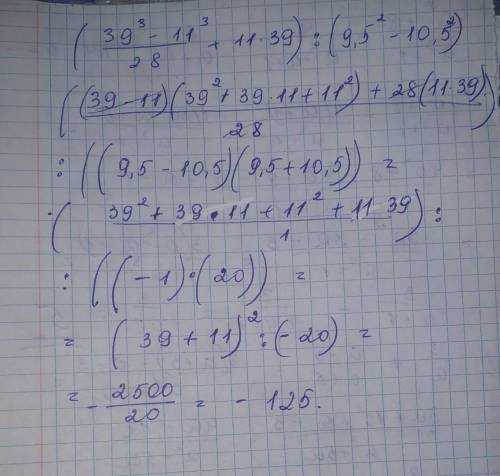 ( (39³ - 11³)/28 + 11·39 ) : (9,5² - 10,5²)
( ((39 - 11)(39² + 39·11 + 11²) + 28(11·39))/28 )
: ((9,5 - 10,5)(9,5 + 10,5)) =
·( (39² + 39·11 + 11² + 11 39)/1 ) :
: ((-1)·(20)) =
= (39 + 11)² : (-20) =
= - 2500/20 = - 125.